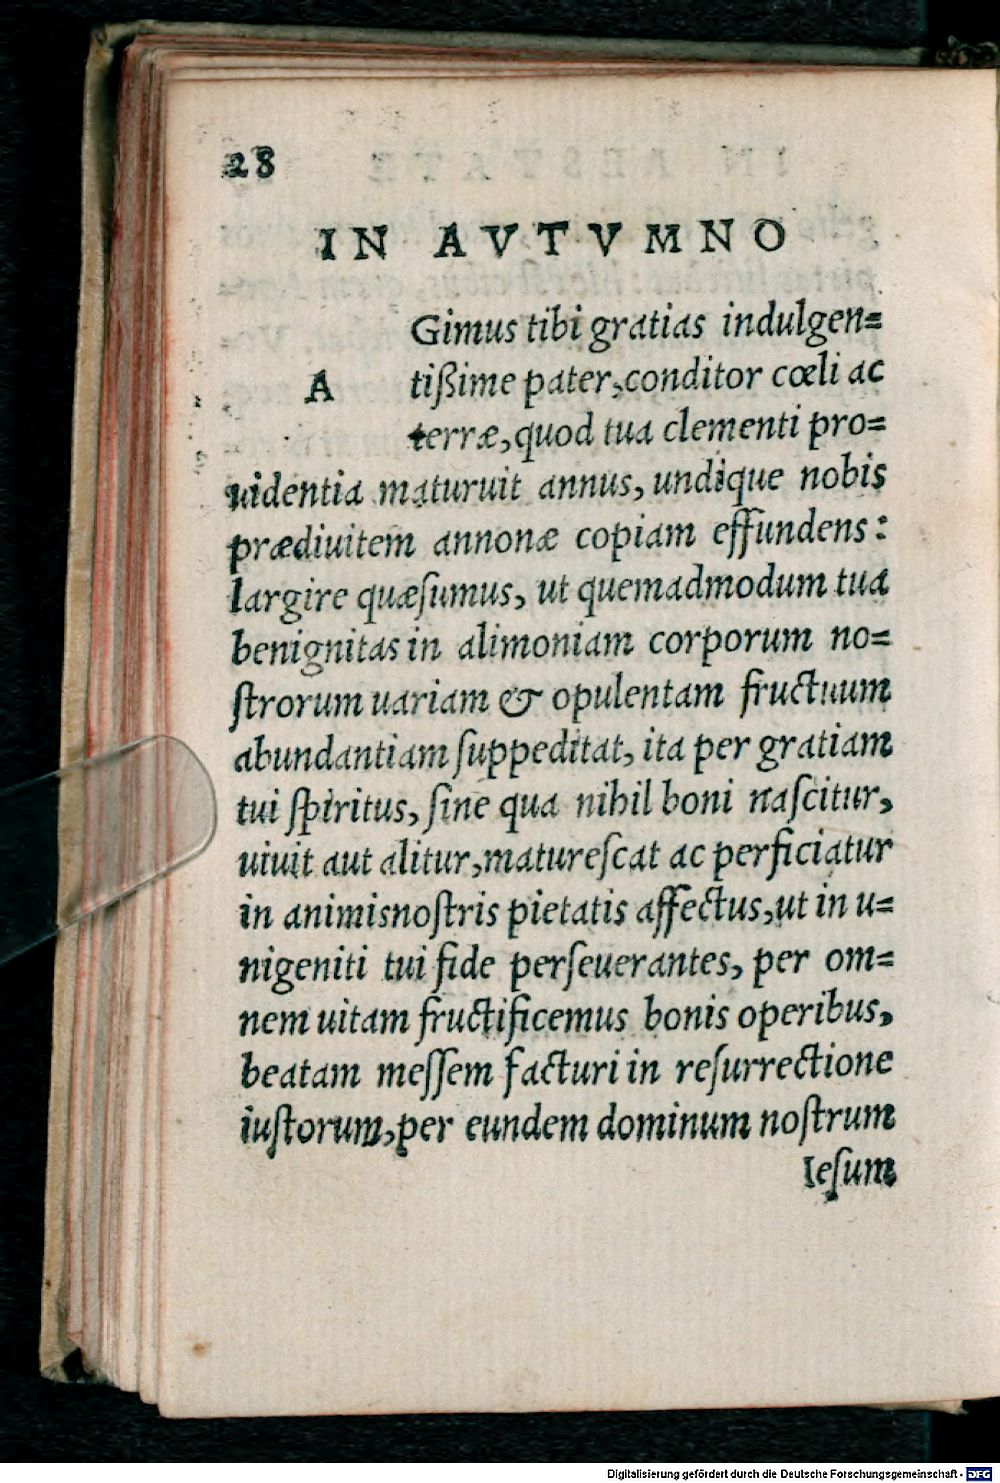 28
IN AVTVMNO
Gimus tibi gratias indulgen=
A tißime pater, conditor cœli ac
terræ, quod tua clementi pro=
uidentia maturuit annus, undique nobis
prædiuitem annonæ copiam effundens:
largire quæſumus, ut quemadmodum tua
benignitas in alimoniam corporum no=
ſtrorum uariam & opulentam fructuum
abundantiam ſuppeditat, ita per gratiam
tui ſpiritus, ſine qua nihil boni naſcitur,
uiuit aut alitur, matureſcat ac perficiatur
in animisnoſtris pietatis affectus, ut in u=
nigeniti tui fide perſeuerantes, per om=
nem uitam fructificemus bonis operibus,
beatam meſſem facturi in reſurrectione
iuſtorum, per eundem dominum noſtrum
Ieſum
Digitalisierung gefördert durch die Deutsche Forschungsgemeinschaft - DFG